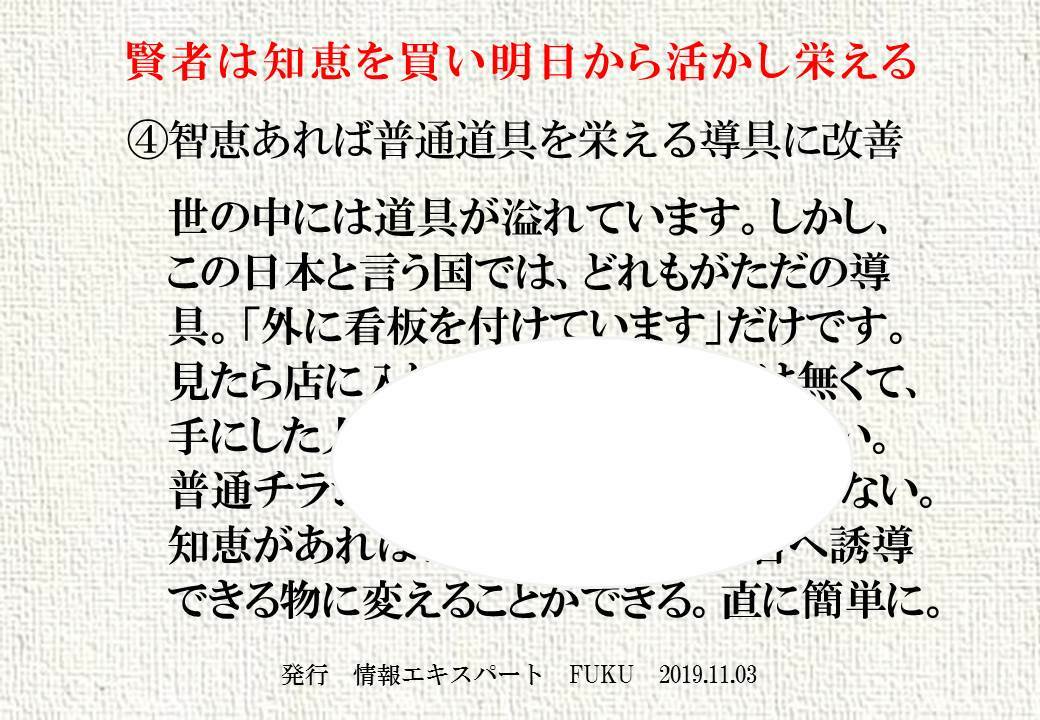 賢者は知恵を買い明日から活かし栄える
④智恵あれば普通道具を栄える導具に改善
世の中には道具が溢れています。しかし、
この日本と言う国では、どれもがただの導
具。「外に看板を付けています」だけです。
見たら店に入 は無くて、
手にした い。
普通チラ ない。
知恵があれば へ誘導
できる物に変えることができる。直に簡単に。
発行 情報エキスパート FUKU 2019.11.03